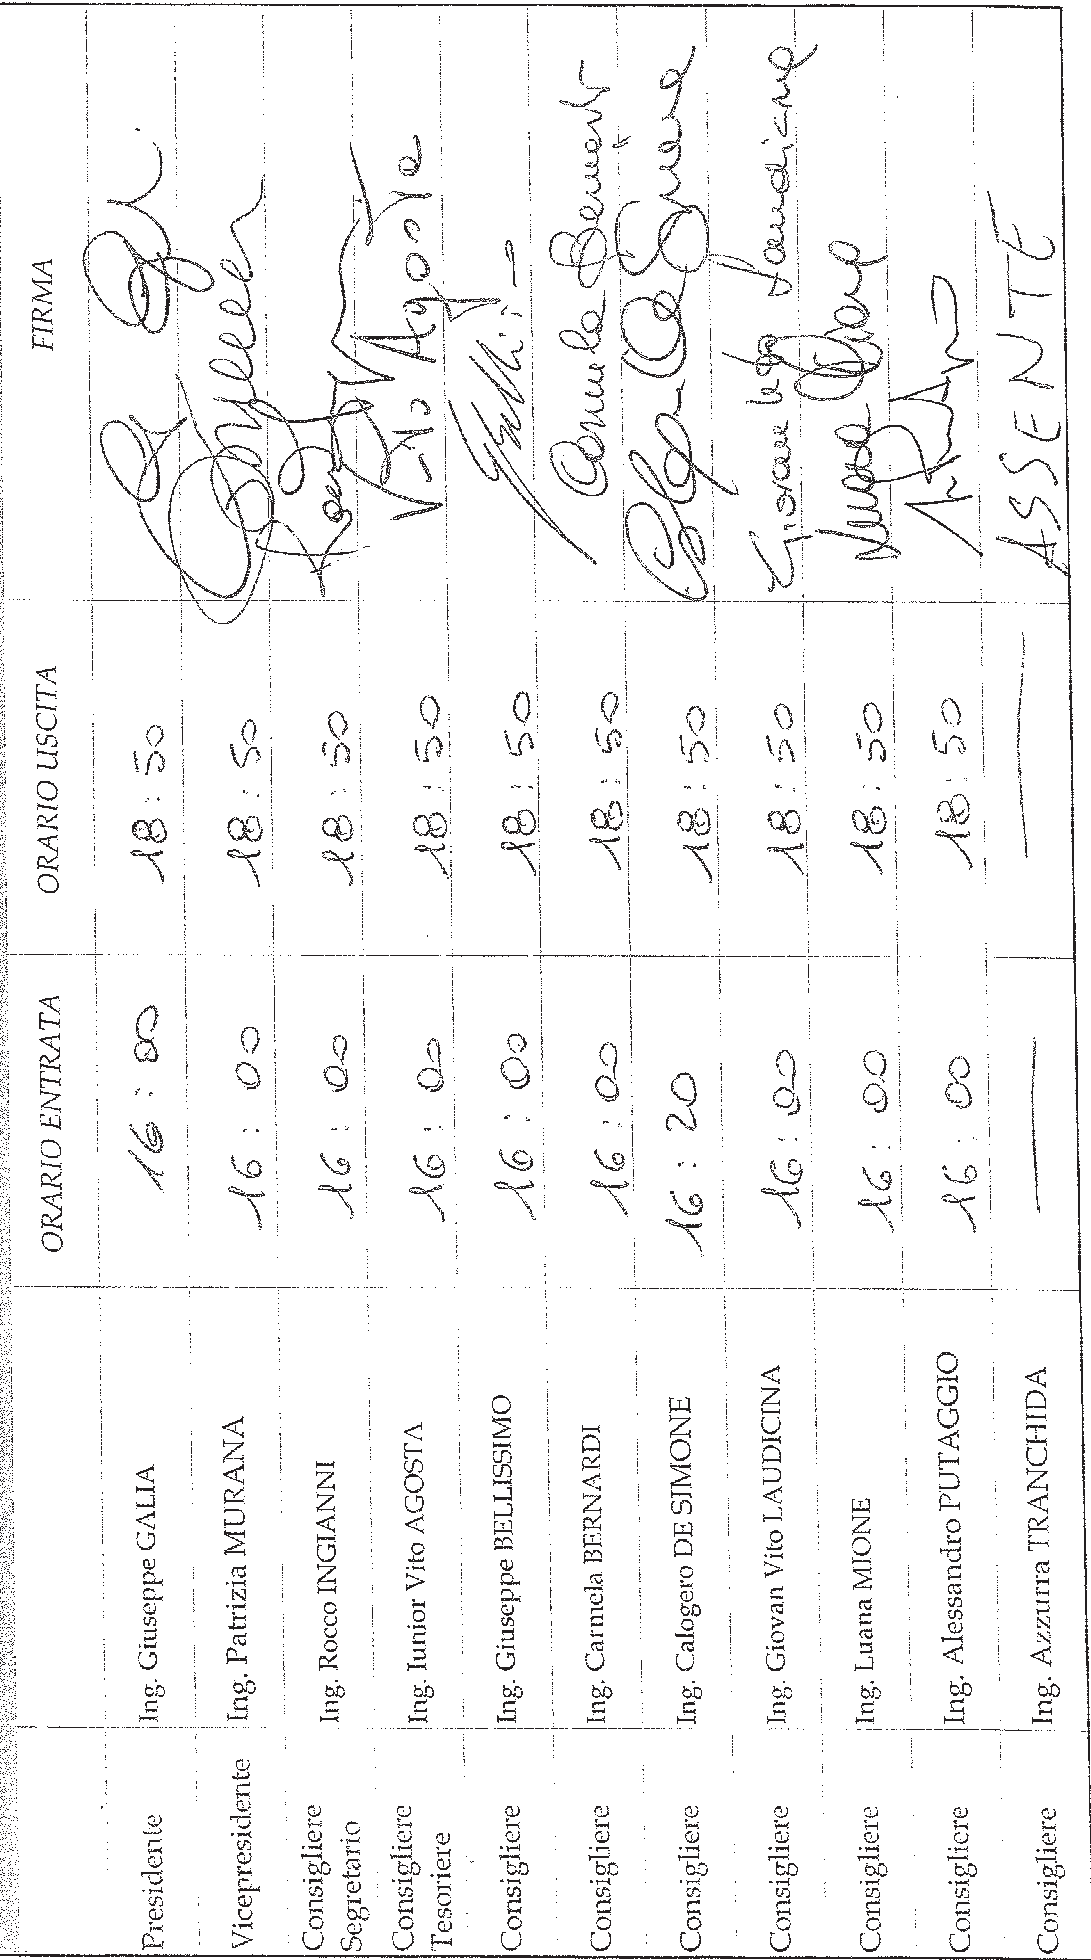 ORARIO ENTRATA ORARIO USCITA FIRMA
Presidente Ing. Giuseppe GALIA 16:00 18:50
Vicepresidente Ing. Patrizia MURANA 16:00 18:50
Consigliere Segretario Ing. Rocco INGIANNI 16:00 18:50
Consigliere Tesoriere Ing. Iunior Vito AGOSTA 16:00 18:50 Vito Agosta
Consigliere Ing. Giuseppe BELLISSIMO 16:00 18:50
Consigliere Ing. Carmela BERNARDI 16:00 18:50 Carmela Bernardi
Consigliere Ing. Calogero DE SIMONE 16:20 18:50
Consigliere Ing. Giovan Vito LAUDICINA 16:00 18:50 Giovan Vito Laudicina
Consigliere Ing. Luana MIONE 16:00 18:50 Luana Mione
Consigliere Ing. Alessandro PUTAGGIO 16:00 18:50
Consigliere Ing. Azzurra TRANCHIDA — — ASSENTE